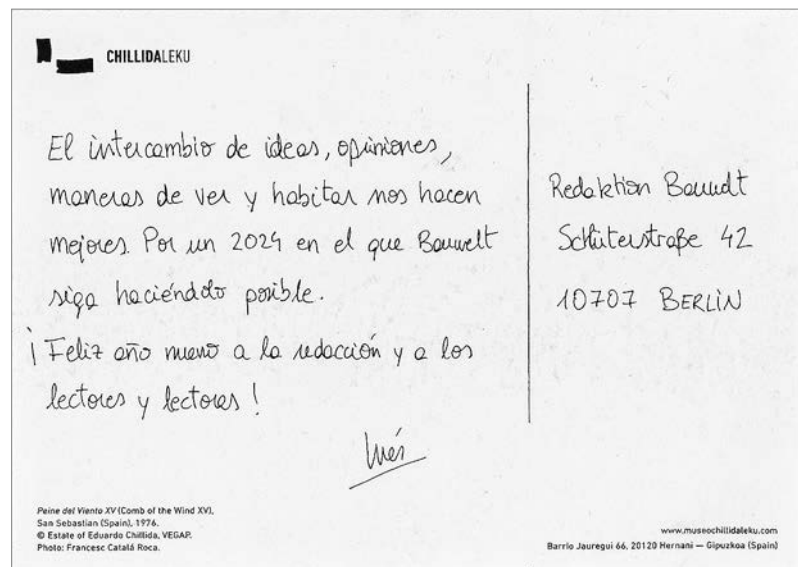 CHILLIDALEKU
El intercambio de ideas, opiniones,
maneras de ver y habitar nos hacen
mejores. Por un 2024 en el que Bauwelt
siga haciéndolo posible.
¡Feliz año nuevo a la redacción y a los
lectores y lectoras!
Inés
Redaktion Bauwelt
Schlüterstraße 42
10707 BERLIN
Peine del Viento XV (Comb of the Wind XV),
San Sebastian (Spain), 1976.
© Estate of Eduardo Chillida, VEGAP.
Photo: Francesc Catalá Roca.
www.museochillidaleku.com
Barrio Jauregui 66, 20120 Hernani — Gipuzkoa (Spain)